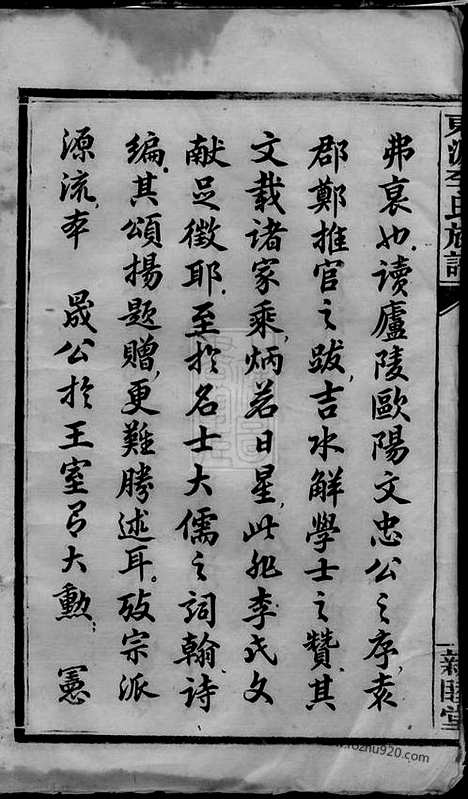 東源李氏族譜
弗衰也.讀廬陵歐陽文忠公之序,袁
郡鄭推官之跋,吉水解學士之贊,其
文載諸家乘,炳若日星,此非李氏文
献足徵耶.至於名士大儒之詞翰,詩
編,其頌揚題贈,更難勝述耳.攷宗派
源流,本 晟公於王室有大勳, 憲
新睦堂